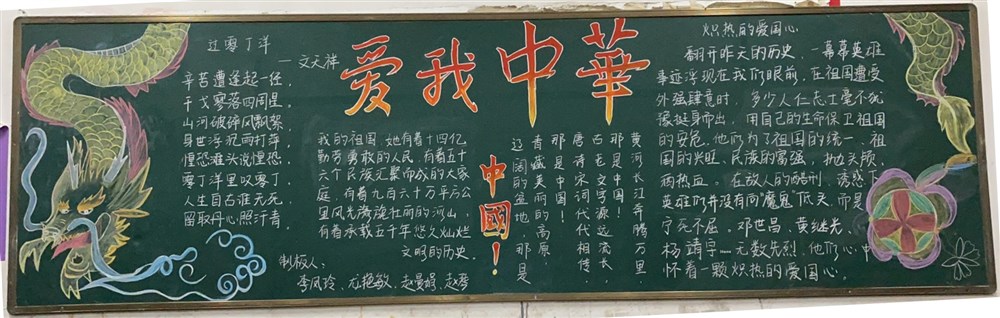 爱我中華
过零丁洋
—文天祥
辛苦遭逢起一经,
干戈寥落四周星。
山河破碎风飘絮,
身世浮沉雨打萍。
惶恐滩头说惶恐,
零丁洋里叹零丁。
人生自古谁无死,
留取丹心照汗青。
我的祖国,她有着十四亿
勤劳勇敢的人民,有着五十
六个民族汇聚而成的大家
庭,有着九百六十万平方公
里风光旖旎壮丽的河山,
有着承载五千年悠久灿烂
文明的历史。
制板人:
李凤玲、亢艳敏、赵曼娟、赵琴
中國!
黄河长江奔腾万里
那是中国!
古老文字源远流长,
唐诗宋词代代相传,
那是中国!
香蕴美丽的高原
辽阔的圣地,那是
炽热的爱国心
翻开昨天的历史,一幕幕英雄
事迹浮现在我们眼前,在祖国遭受
外强肆意时,多少人仁志士毫不犹
豫挺身而出,用自己的生命保卫祖国
的安危,他们为了祖国的统一、祖
国的兴旺、民族的富强,抛头颅,
洒热血。在敌人的酷刑、诱惑下,
英雄们并没有向魔鬼低头,而是
宁死不屈。邓世昌、黄继光、
杨靖宇……无数先烈,他们心中
怀着一颗炽热的爱国心。